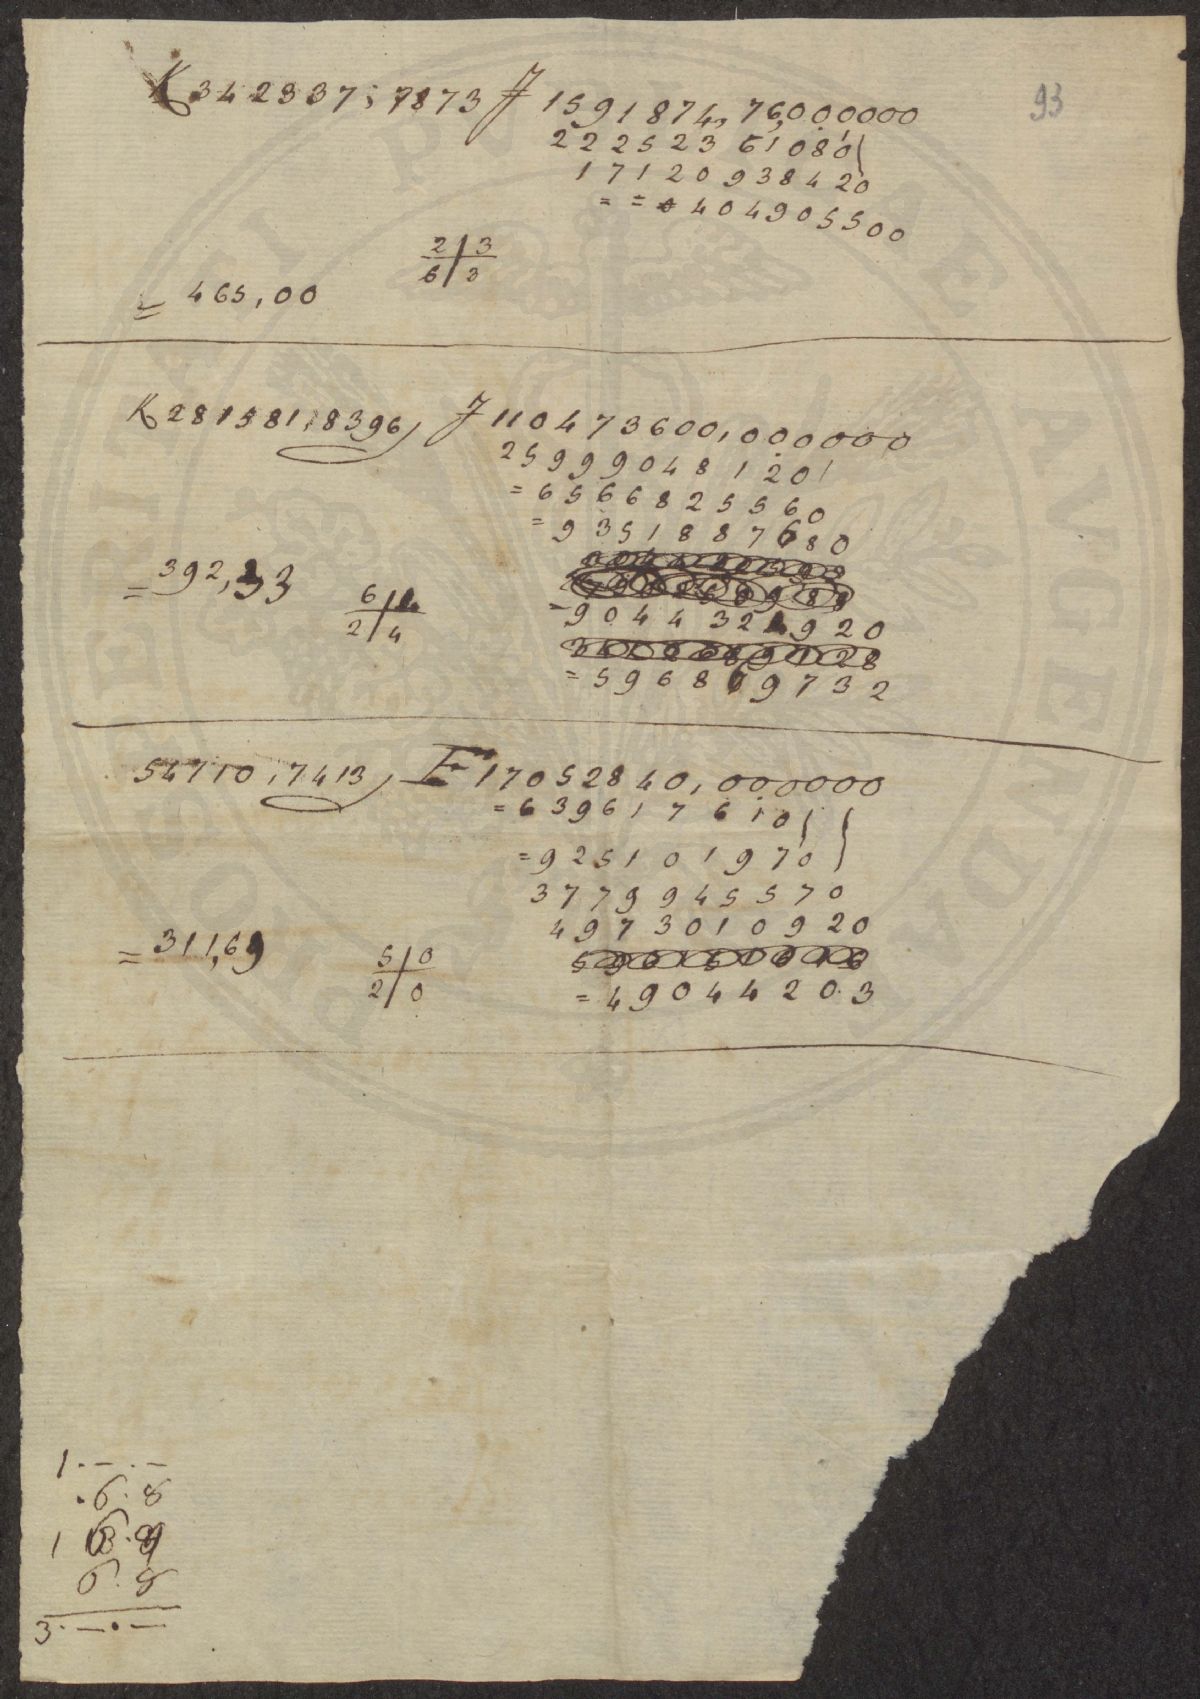 93
K 342337,7873 J 1591874,76,000000
222523 61080
17120938420
= = 0 404905500
2 / 3
6 / 3
= 465,00
K 281581,8396, J 110473600,000000
2599904812 0
= 6566825560
= 9351887680
= 392,33
6 / 4
2 / 4
= 904432 4920
= 596879732
54710,7413, F 17052840,000000
= 6396176 10
= 925101970
3779945570
49730 10920
= 311,69
5 / 0
2 / 0
= 49044203
1 . — . —
. 6 . 8
6 . 8
3 . — . —